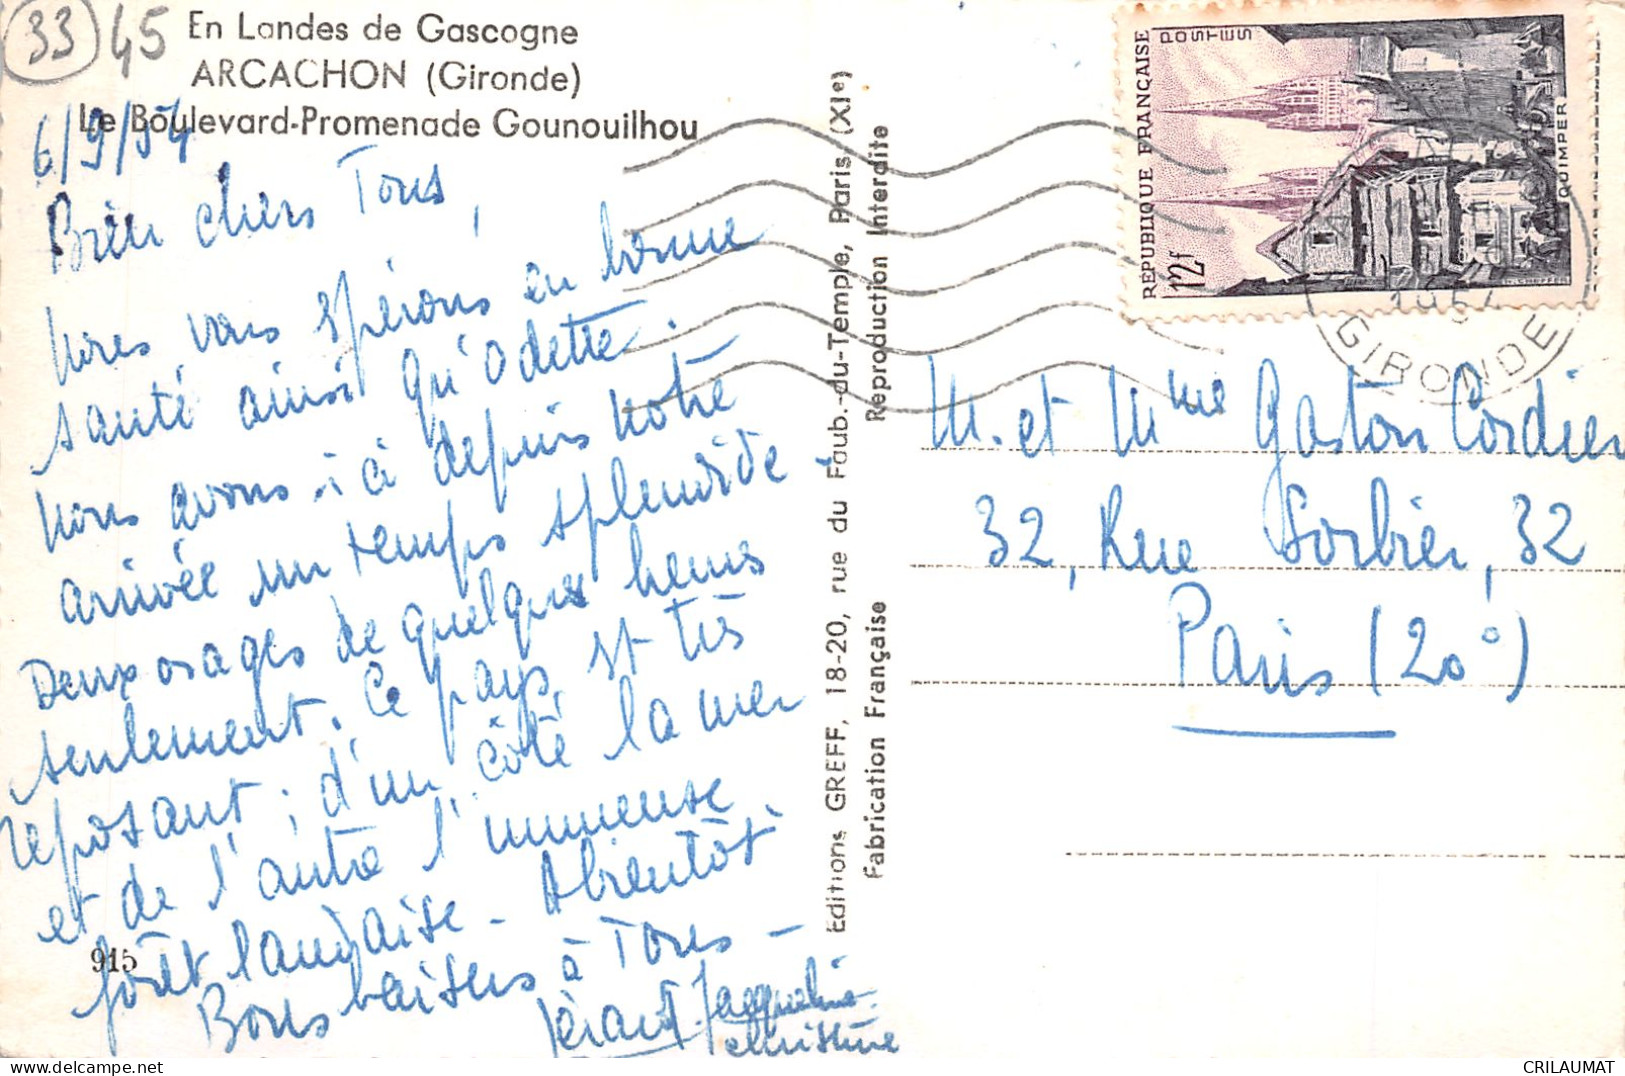 33 45
En Landes de Gascogne
ARCACHON (Gironde)
Le Boulevard-Promenade Gounouilhou
6/9/54
Bien chers Tous,
Nous vous espérons en bonne
santé ainsi qu'Odette.
Nous avons ici depuis notre
arrivée un temps splendide -
Deux orages de quelques heures
seulement. Ce pays est très
reposant ; d'un côté la mer
et de l'autre l'immense
forêt landaise - A bientôt
Bons baisers à Tous -
Gérard Jacqueline
Christine
915
Editions GREFF, 18-20, rue du Faub.-du-Temple, Paris (XIe)
Fabrication Française Reproduction Interdite
RÉPUBLIQUE FRANÇAISE
POSTES
12f
QUIMPER
1954
GIRONDE
M. et Mme Gaston Cordier
32, Rue Sorbier, 32
Paris (20e)
CRILAUMAT